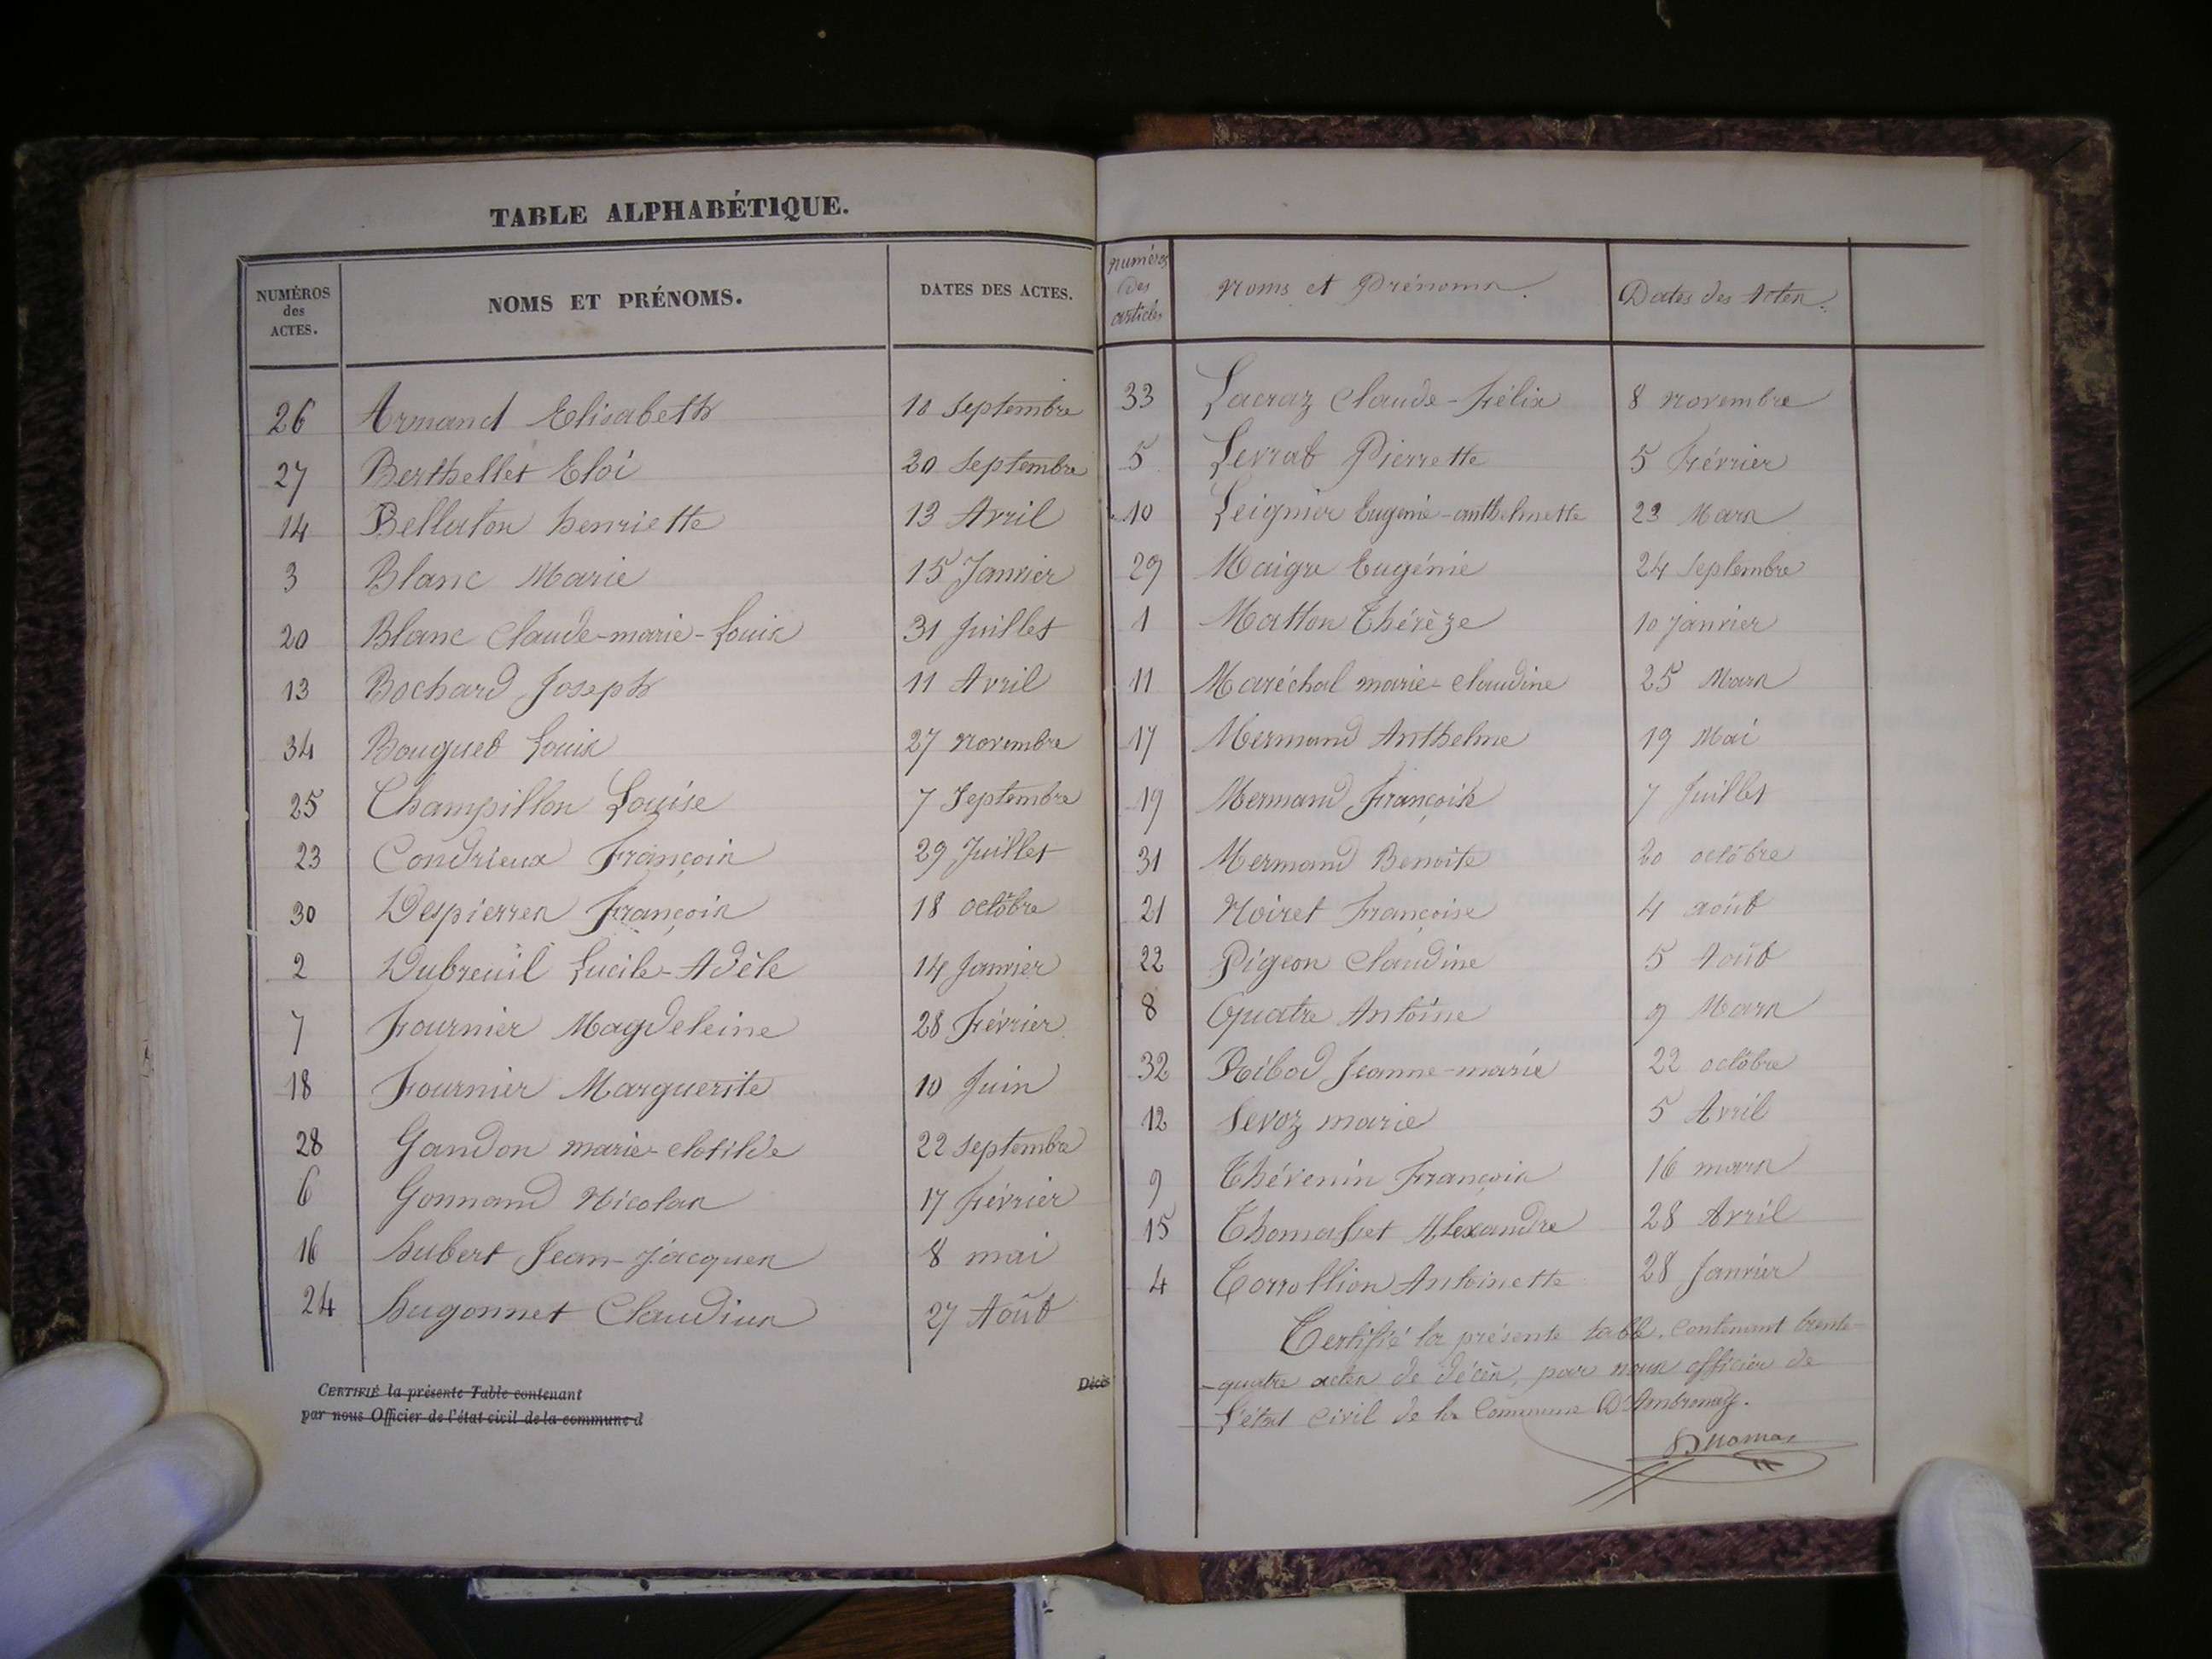 TABLE ALPHABÉTIQUE.
NUMÉROS des ACTES. NOMS ET PRÉNOMS. DATES DES ACTES.
26 Armand Elisabeth 10 Septembre
27 Berthellet Eloi 20 Septembre
14 Belluton henriette 13 Avril
3 Blanc Marie 15 Janvier
20 Blanc Claude-marie-Louis 31 Juillet
13 Bochard Joseph 11 Avril
34 Bouguet Louis 27 novembre
25 Champillon Louise 7 Septembre
23 Condrieux François 29 Juillet
30 Despierres François 18 octobre
2 Dubreuil Lucile-Adèle 14 Janvier
7 Fournier Magdeleine 28 Février
18 Fournier Marguerite 10 Juin
28 Gandon marie-clotilde 22 septembre
6 Gonnand Nicolas 17 Février
16 hubert Jean-jacques 8 mai
24 hugonnet Claudius 27 Août
CERTIFIÉ la présente Table contenant
par nous Officier de l'état civil de la commune d
Décès
numéros des articles noms et Prénoms. Dates des Actes.
33 Lacraz Claude-Félix 8 novembre
5 Levrat Pierrette 5 Février
10 Leignier Eugénie-anthelmette 23 Mars
29 Maigre Eugénie 24 Septembre
1 Matton Thérèze 10 janvier
11 Maréchal marie-claudine 25 Mars
17 Mermand Anthelme 19 Mai
19 Mermand François 7 Juillet
31 Mermand Benoite 20 octobre
21 Noiret Françoise 4 août
22 Pigeon Claudine 5 Août
8 Quatre Antoine 9 Mars
32 Ribod Jeanne-marie 22 octobre
12 Sevoz marie 5 Avril
9 Thévenin François 16 mars
15 Thomasset Alexandre 28 Avril
4 Torrollion Antoinette 28 Janvier
Certifié la présente table, contenant trente-
-quatre actes de décès, par nous officier de
L'état civil de la Commune D'Ambronay.
Thomas